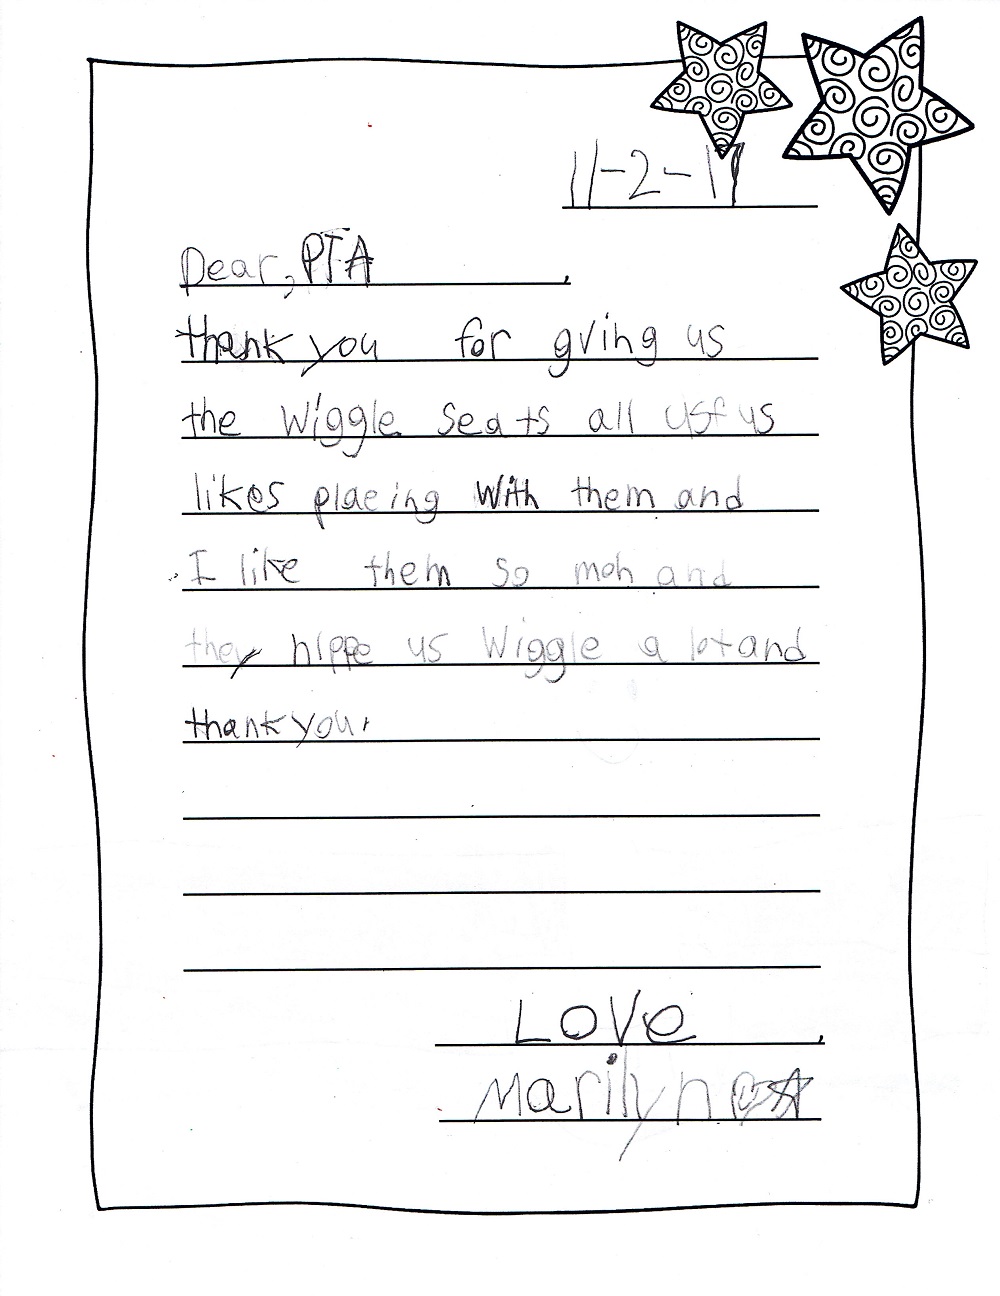 11-2-17
Dear, PTA
thank you for gving us
the Wiggle Seats all us us
likes plaeing with them and
I like them so moh and
they hlppe us Wiggle a lot and
thank you.
LOVE
Marilyn